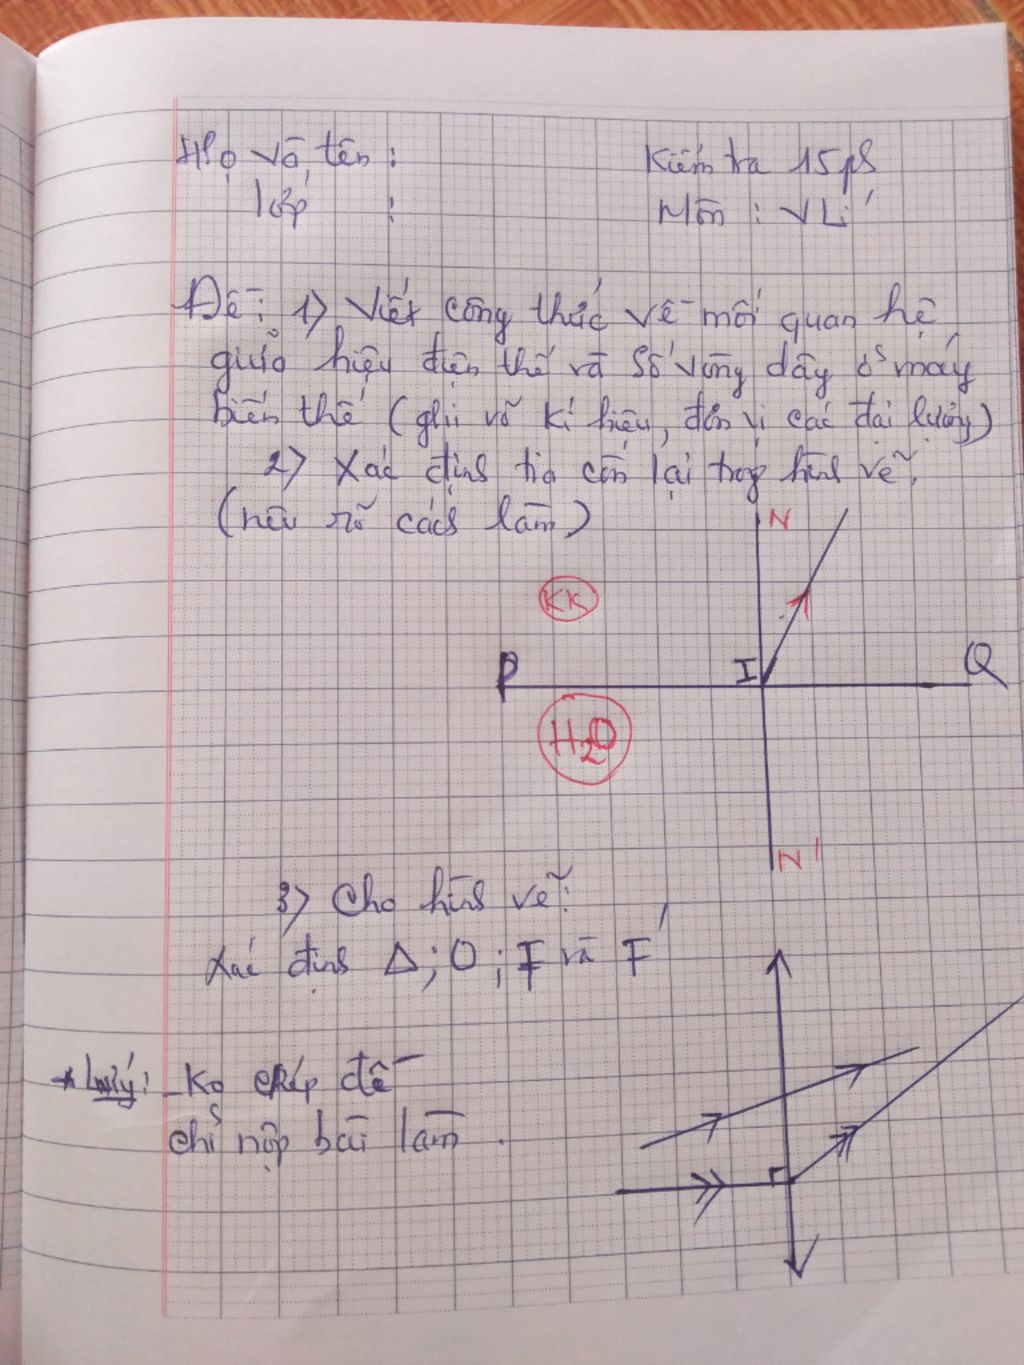 Họ và tên :
Kiểm tra 15ph
lớp :
Môn : V Lí
Đề: 1) Viết công thức về mối quan hệ
giữa hiệu điện thế và số vòng dây ở máy
biến thế (ghi rõ kí hiệu, đơn vị các đại lượng)
2) Xác định tia còn lại trong hình vẽ.
(nêu rõ cách làm)
N
KK
P I Q
H2O
N'
3) Cho hình vẽ:
Xác định Δ; O; F và F'
* Lưu ý: - Ko chép đề
chỉ nộp bài làm.